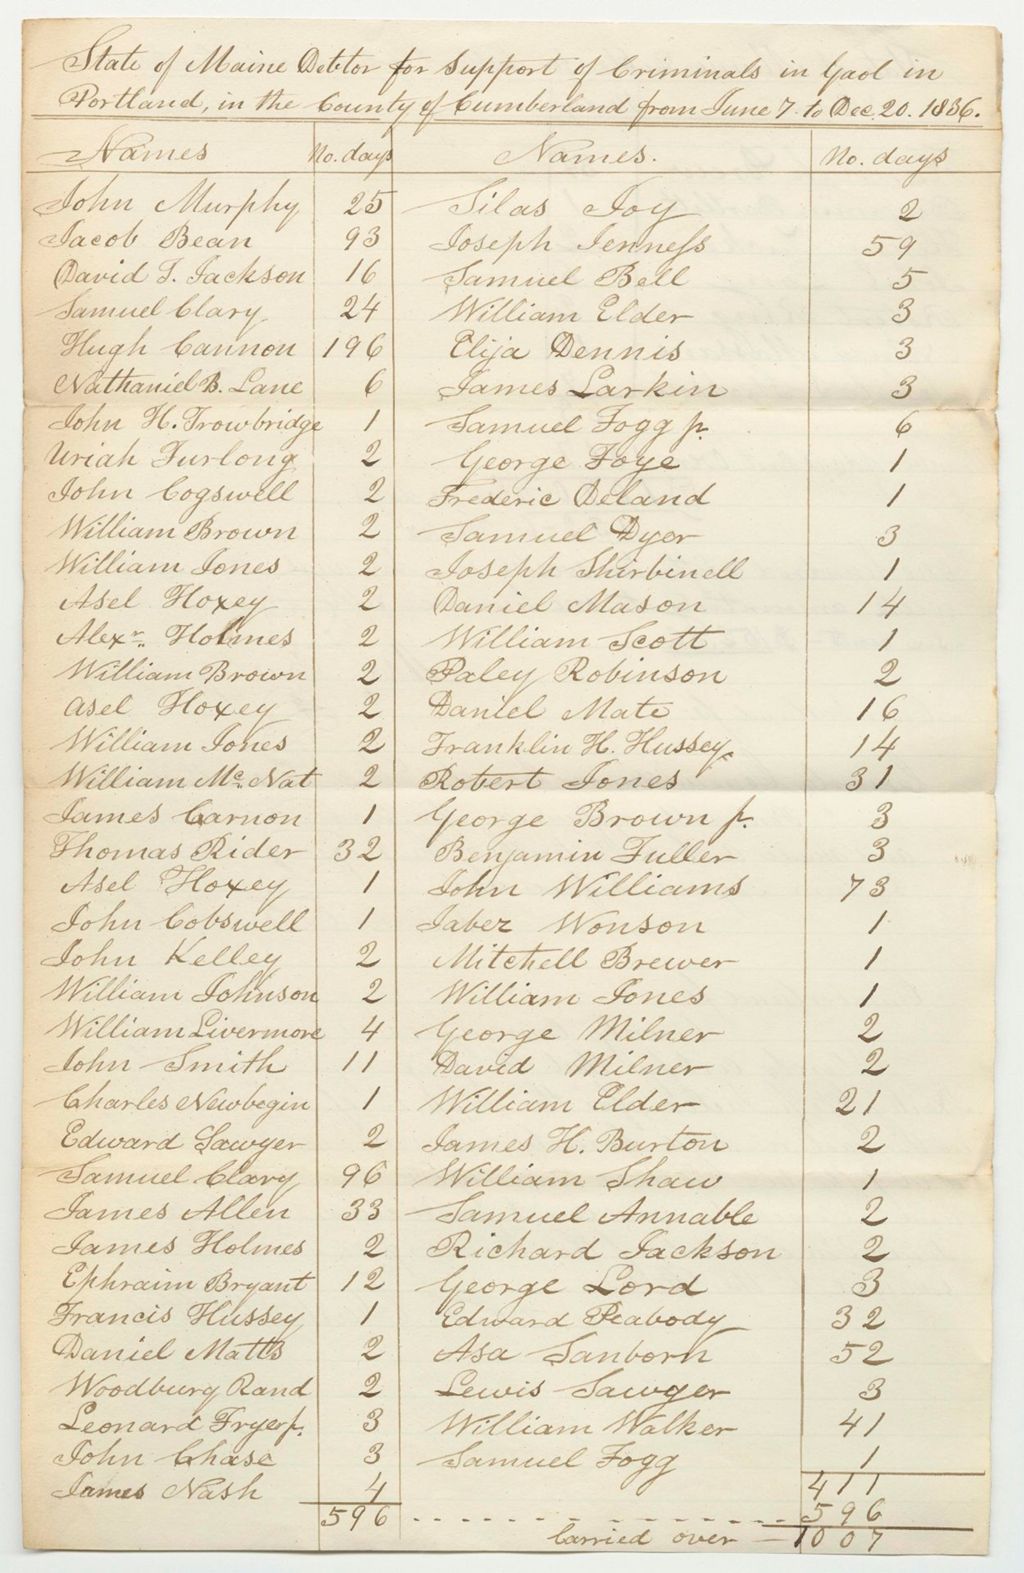 State of Maine Debtor for Support of Criminals in Gaol in
Portland, in the County of Cumberland from June 7 to Dec. 20. 1836.
Names No. days Names. No. days
John Murphy 25 Silas Joy 2
Jacob Bean 93 Joseph Jenness 59
David T. Jackson 16 Samuel Bell 5
Samuel Clary 24 William Elder 3
Hugh Cannon 196 Elija Dennis 3
Nathaniel B. Lane 6 James Larkin 3
John H. Trowbridge 1 Samuel Fogg jr. 6
Uriah Furlong 2 George Foye 1
John Cogswell 2 Frederic Deland 1
William Brown 2 Samuel Dyer 3
William Jones 2 Joseph Shirbinell 1
Asel Hoxey 2 Daniel Mason 14
Alexr. Holmes 2 William Scott 1
William Brown 2 Paley Robinson 2
Asel Hoxey 2 Daniel Mate 16
William Jones 2 Franklin H. Hussey 14
William Mc. Nat 2 Robert Jones 31
James Carnon 1 George Brown jr. 3
Thomas Rider 32 Benjamin Fuller 3
Asel Hoxey 1 John Williams 73
John Cobswell 1 Jabez Wonson 1
John Kelley 2 Mitchell Brewer 1
William Johnson 2 William Jones 1
William Livermore 4 George Milner 2
John Smith 11 David Milner 2
Charles Newbegin 1 William Elder 21
Edward Sawyer 2 James H. Burton 2
Samuel Clary 96 William Shaw 1
James Allen 33 Samuel Annable 2
James Holmes 2 Richard Jackson 2
Ephraim Bryant 12 George Lord 3
Francis Hussey 1 Edward Peabody 32
Daniel Matts 2 Asa Sanborn 52
Woodbury Rand 2 Lewis Sawyer 3
Leonard Fryer jr. 3 William Walker 41
John Chase 3 Samuel Fogg 1
James Nash 4 411
596 596
Carried over 1007